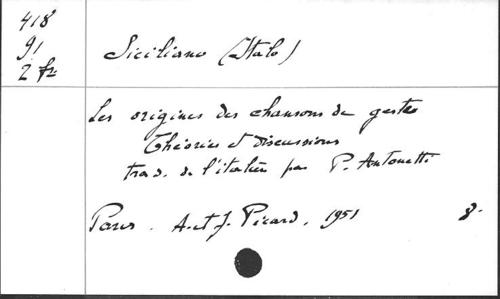 418
91
2 fr
Siciliano (Italo)
Les origines des chansons de gestes
Théories et discussions
trad. de l'italien par P. Antonetti
Paris. A. et J. Picard, 1951 8.